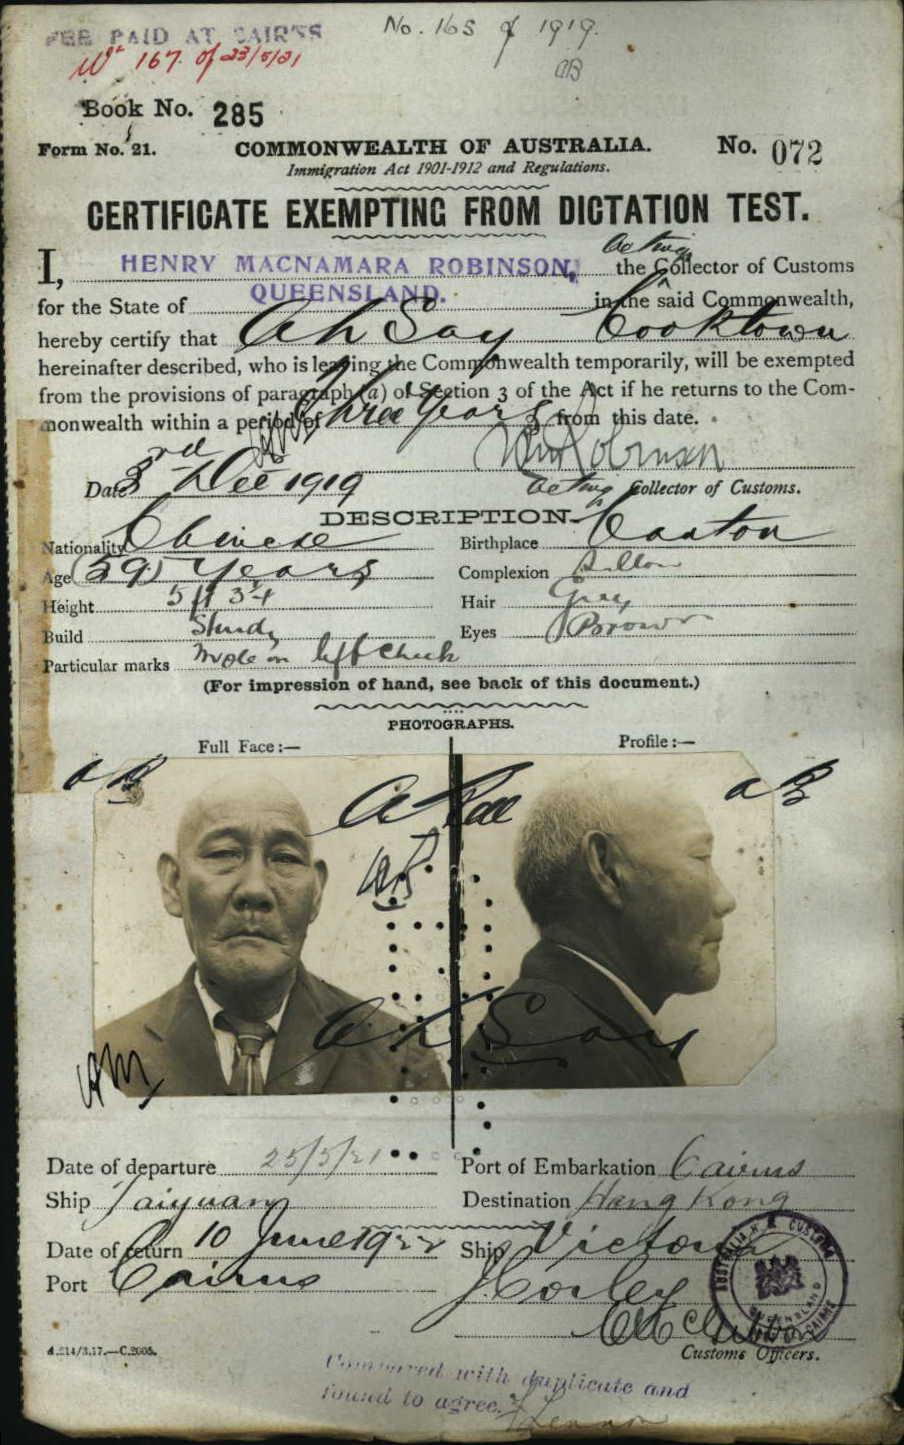 FEE PAID AT CAIRNS
No. 165 of 1919.
No 167. of 23/5/21
Book No. 285
Form No. 21.
COMMONWEALTH OF AUSTRALIA.
No. 072
Immigration Act 1901-1912 and Regulations.
CERTIFICATE EXEMPTING FROM DICTATION TEST.
Acting
I, HENRY MACNAMARA ROBINSON, the Collector of Customs
for the State of QUEENSLAND. in the said Commonwealth,
hereby certify that Ah Say Cooktown
hereinafter described, who is leaving the Commonwealth temporarily, will be exempted
from the provisions of paragraph (a) of Section 3 of the Act if he returns to the Com-
monwealth within a period of Three Years from this date.
Date 3rd Dec 1919
Acting Collector of Customs.
DESCRIPTION.
Nationality Chinese Birthplace Canton
Age (59) years Complexion
Height 5 ft 3¼ Hair Grey
Build Sturdy Eyes Brown
Particular marks Mole on left cheek
(For impression of hand, see back of this document.)
PHOTOGRAPHS.
Full Face:— Profile:—
Ah Say
Date of departure 25/5/21 Port of Embarkation Cairns
Ship Taiyuan Destination Hong Kong
Date of return 10 June 1922 Ship Victoria
Port Cairns
Customs Officers.
AUSTRALIA H. M. CUSTOMS
QUEENSLAND
CAIRNS
A.214/3.17.—C.2605.
Compared with duplicate and
found to agree.